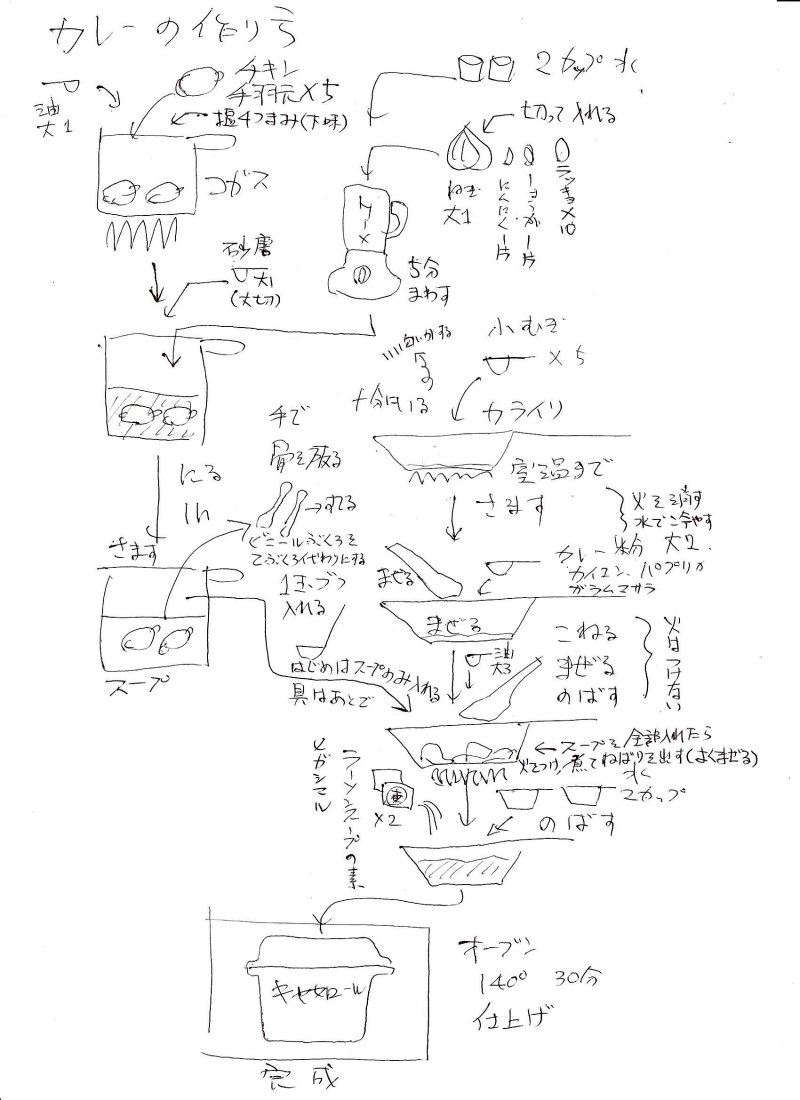 カレーの作り方
油
大1
チキン
手羽元×5
塩4つまみ(下味)
コガス
2カップ水
切って入れる
ねぎ
大1
にんにく1片
しょうが1片
ラッキョ×10
5分
まわす
砂唐
大1
(大切)
小むぎ
×5
匂いがする
まで
十分にいる
カライリ
室温まで
さます
火を消す
水で冷やす
にる
1h
手で
骨を取る
→すてる
ビニールぶくろを
てぶくろ代わりにする
さます
スープ
カレー粉 大2
カイエン、パプリカ
ガラムマサラ
まぜる
まぜる
油
大3
こねる
まぜる
のばす
火はつけない
入れる
はじめはスープのみ入れる
具はあとで
←スープを全部入れたら
火をつけ煮てねばりを出す(よくまぜる)
ラーメンスープの素
×2
水
2カップ
のばす
キャセロール
オーブン
140° 30分
仕上げ
完成